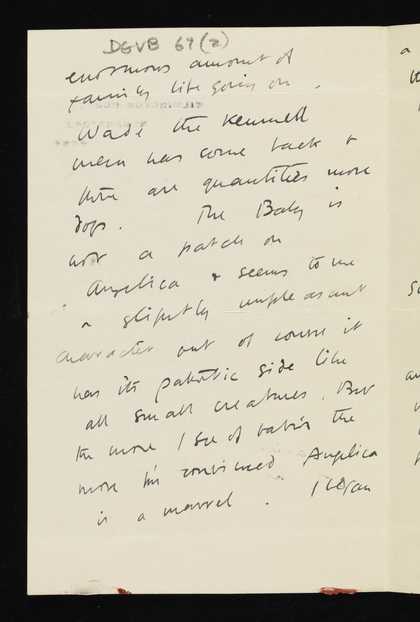 DGVB 67(2)
enormous amount of
family life going on.
Wade the Kennell
men has come back &
there are quantities more
dogs. The Baby is
not a patch on
Angelica & seems to me
a slightly unpleasant
character out of course it
has its pathetic side like
all small creatures. But
the more I see of babies the
more I'm convinced Angelica
is a marvel.